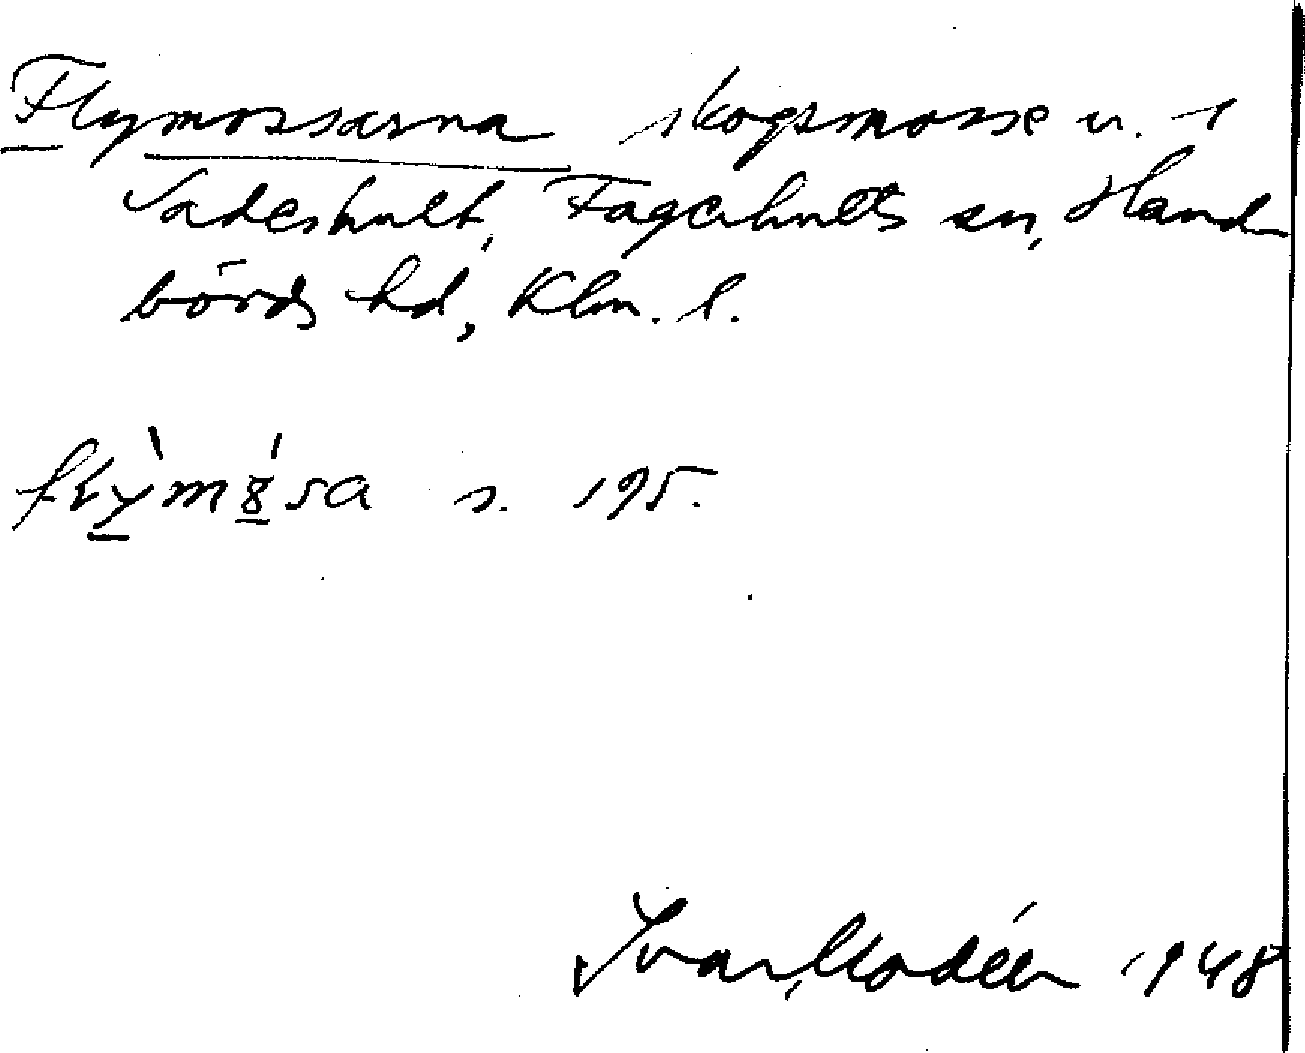 Flymossarna skogsmosse u. 1
Sadeshult, Fagerhults sn, Hand
börds hd, Klm. l.
s. 195.
Ivar Modéer 1948